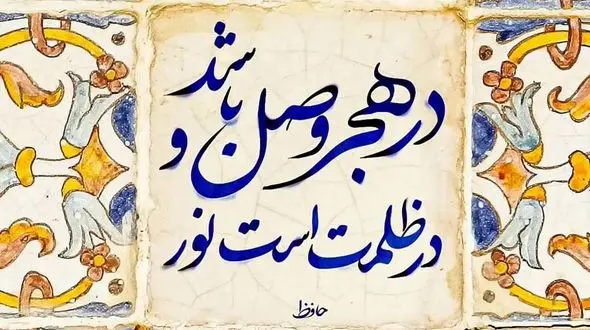 در هجر وصل باشد و
در ظلمت است نور
حافظ